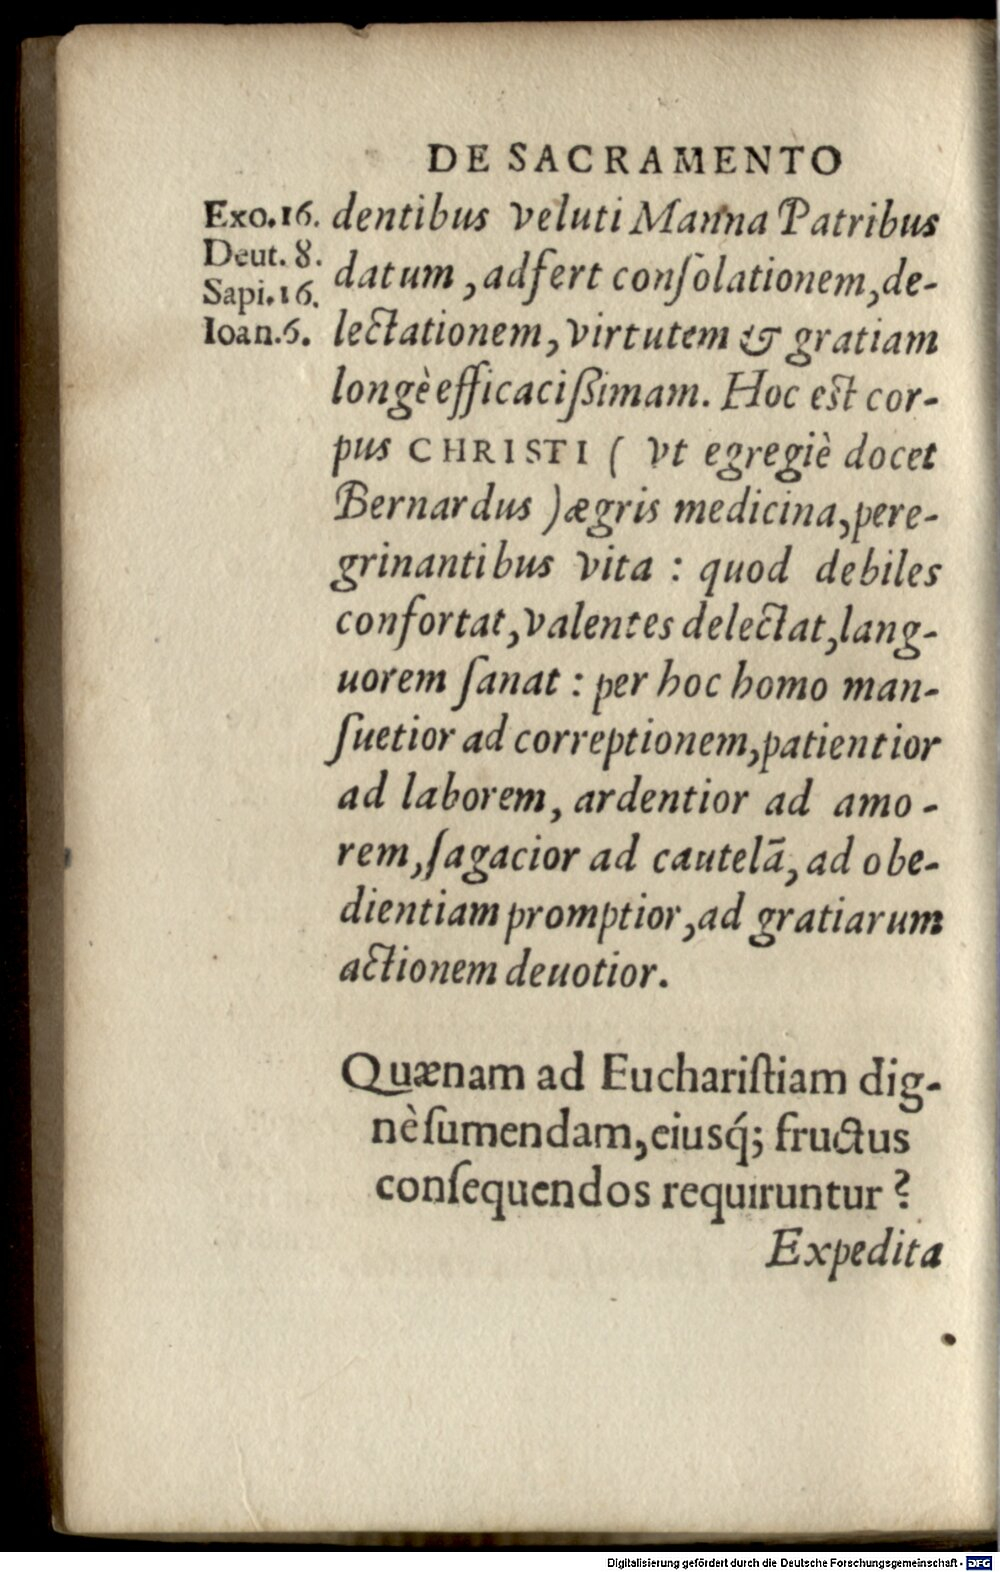 DE SACRAMENTO
Exo.16.
Deut. 8.
Sapi.16.
Ioan.6.
dentibus veluti Manna Patribus
datum, adfert conſolationem, de-
lectationem, virtutem & gratiam
longè efficacißimam. Hoc est cor-
pus CHRISTI ( vt egregiè docet
Bernardus ) ægris medicina, pere-
grinantibus vita : quod debiles
confortat, valentes delectat, lang-
uorem ſanat : per hoc homo man-
ſuetior ad correptionem, patientior
ad laborem, ardentior ad amo-
rem, ſagacior ad cautelã, ad obe-
dientiam promptior, ad gratiarum
actionem deuotior.
Quænam ad Euchariſtiam dig-
nè ſumendam, eiusq́; fructus
conſequendos requiruntur ?
Expedita
Digitalisierung gefördert durch die Deutsche Forschungsgemeinschaft - DFG